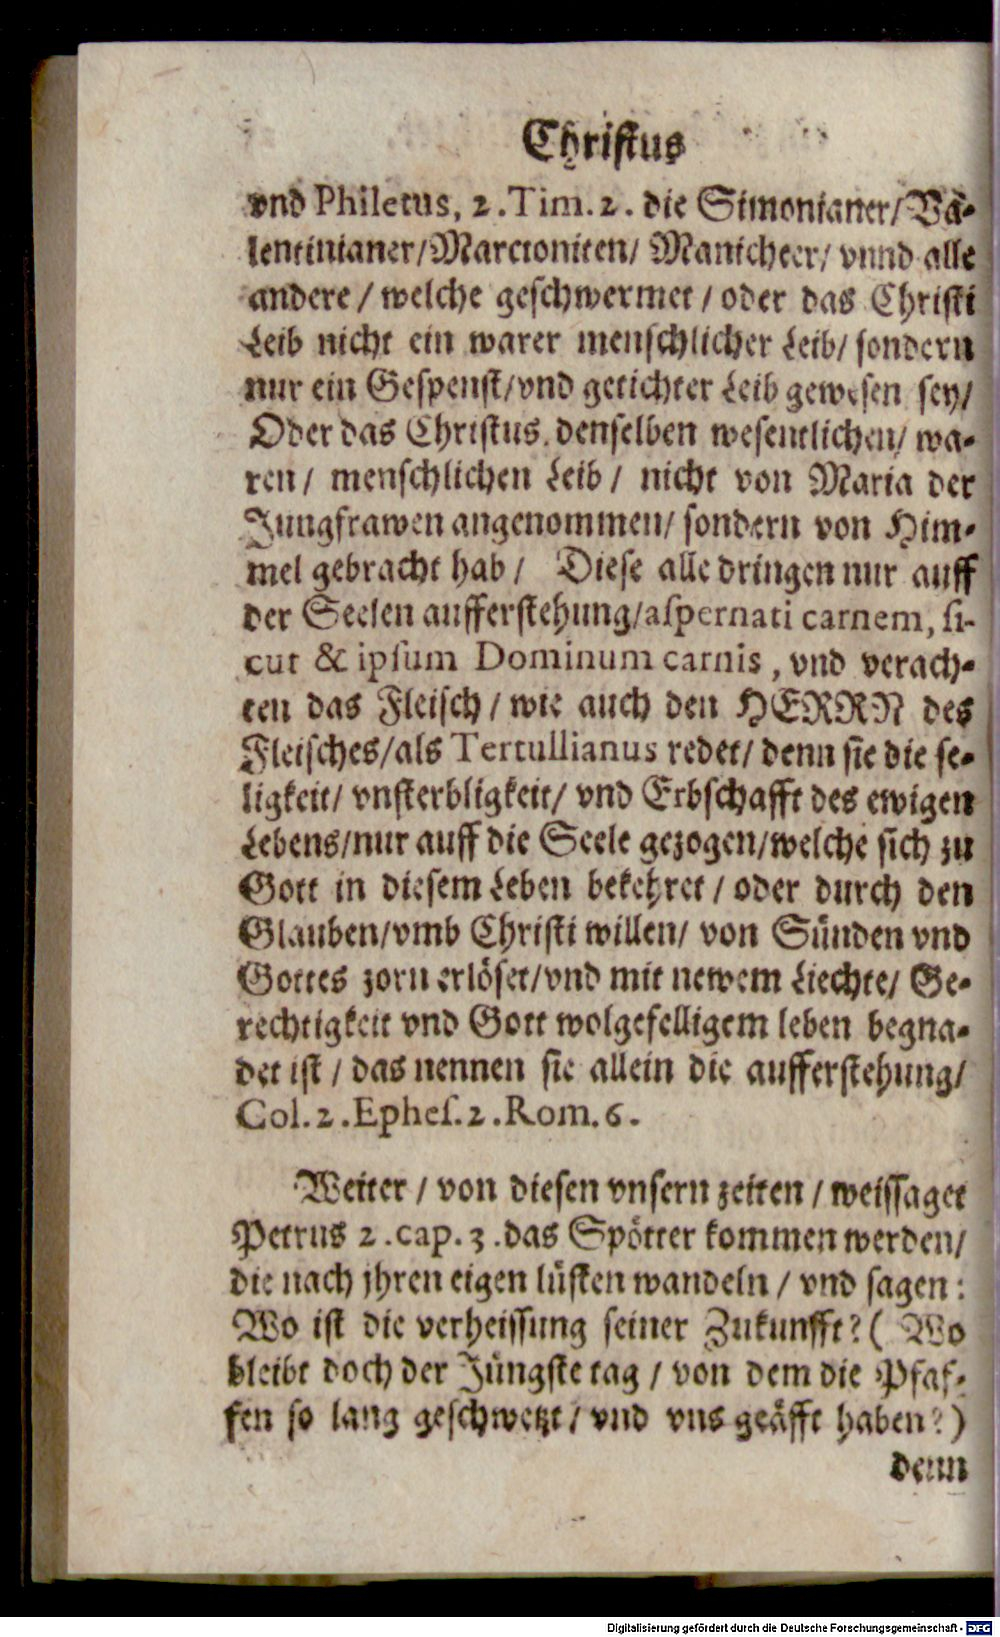 Christus
vnd Philetus, 2. Tim. 2. die Simonianer/ Va-
lentinianer/ Marcioniten/ Manicheer/ vnnd alle
andere / welche geschwermet / oder das Christi
Leib nicht ein warer menschlicher Leib/ sondern
nur ein Gespenst/ vnd getichter Leib gewesen sey/
Oder das Christus denselben wesentlichen/ wa-
ren / menschlichen Leib / nicht von Maria der
Jungfrawen angenommen/ sondern von Him-
mel gebracht hab / Diese alle dringen nur auff
der Seelen aufferstehung/ aspernati carnem, si-
cut & ipsum Dominum carnis, vnd verach-
ten das Fleisch / wie auch den HERRN des
Fleisches/ als Tertullianus redet/ denn sie die se-
ligkeit/ vnsterbligkeit/ vnd Erbschafft des ewigen
Lebens/ nur auff die Seele gezogen/ welche sich zu
Gott in diesem Leben bekehret / oder durch den
Glauben/ vmb Christi willen/ von Sünden vnd
Gottes zorn erlöset/ vnd mit newem Liechte/ Ge-
rechtigkeit vnd Gott wolgefelligem leben begna-
det ist / das nennen sie allein die aufferstehung/
Col. 2. Ephes. 2. Rom. 6.
Weiter / von diesen vnsern zeiten / weissaget
Petrus 2. cap. 3. das Spötter kommen werden/
die nach jhren eigen lüsten wandeln / vnd sagen:
Wo ist die verheissung seiner Zukunfft? ( Wo
bleibt doch der Jüngste tag / von dem die Pfaf-
fen so lang geschwetzt / vnd vns geäfft haben?)
denn
Digitalisierung gefördert durch die Deutsche Forschungsgemeinschaft - DFG